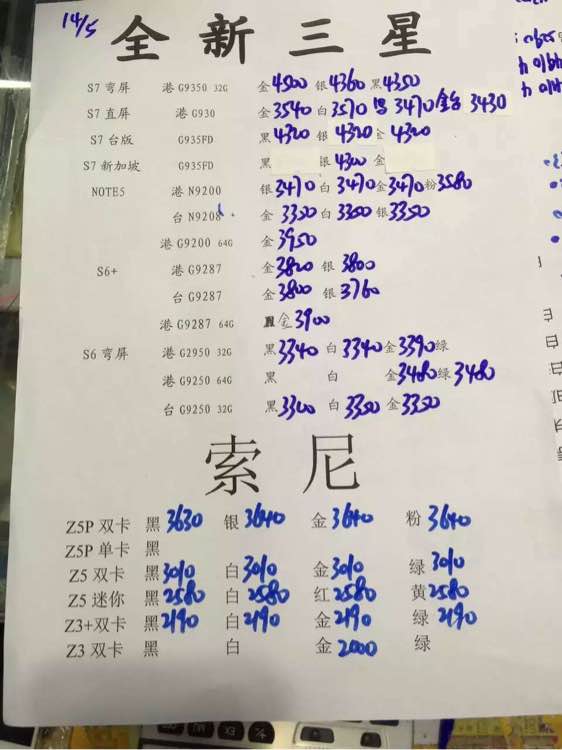 14/5
全新三星
S7 弯屏 港 G9350 32G 金4500 银4360 黑4350
S7 直屏 港 G930 金3540 白3570 3470 3430
S7 台版 G935FD 黑4320 银4320 金4320
S7 新加坡 G935FD 黑 银4300 金
NOTE5 港 N9200 银3470 白3470 金3470 粉3580
台 N9208 金3350 白3300 银3350
港 G9200 64G 金3950
S6+ 港 G9287 金3820 银3800
台 G9287 金3800 银3760
港 G9287 64G 金3900
S6 弯屏 港 G2950 32G 黑3340 白3340 金3390 绿
港 G9250 64G 黑 白 金3480 绿3480
台 G9250 32G 黑3300 白3350 金3350
索尼
Z5P 双卡 黑3630 银3640 金3640 粉3640
Z5P 单卡 黑
Z5 双卡 黑3010 白3010 金3010 绿3010
Z5 迷你 黑2580 白2580 红2580 黄2580
Z3+双卡 黑2190 白2190 金2190 绿2190
Z3 双卡 黑 白 金2000 绿